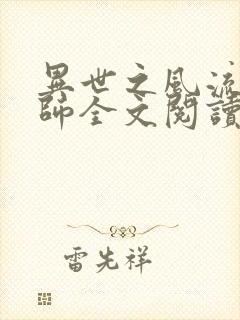 異世之風流
師全文閱讀
雷先祥